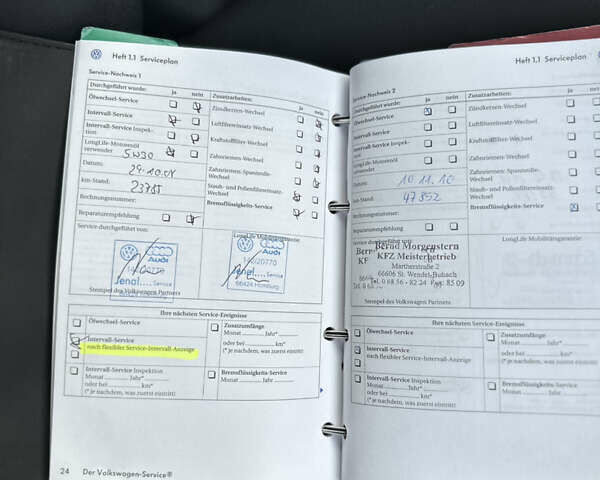 Heft 1.1 Serviceplan
Service-Nachweis 1
Durchgeführt wurde: ja nein
Ölwechsel-Service
Intervall-Service
Intervall-Service Inspek-
tion
LongLife-Motorenöl
verwendet
5W30
Datum:
29.10.08
km-Stand:
23785
Rechnungsnummer:
Reparaturempfehlung
Zusatzarbeiten: ja nein
Zündkerzen-Wechsel
Luftfiltereinsatz-Wechsel
Kraftstofffilter-Wechsel
Zahnriemen-Wechsel
Zahnriemen-Spannrolle-
Wechsel
Staub- und Pollenfiltereinsatz-
Wechsel
Bremsflüssigkeits-Service
Service durchgeführt von:
LongLife Mobilitätsgarantie
Audi
Service
66424 Homburg
Audi
Service
66424 Homburg
Stempel des Volkswagen Partners
Ihre nächsten Service-Ereignisse
Ölwechsel-Service
Intervall-Service
nach flexibler Service-Intervall-Anzeige
Intervall-Service Inspektion
Monat Jahr
oder bei km*
(* je nachdem, was zuerst eintritt)
Zusatzumfänge
Monat Jahr*
oder bei km*
(* je nachdem, was zuerst eintritt)
Bremsflüssigkeits-Service
Monat Jahr
24 Der Volkswagen-Service®
Heft 1.1 Serviceplan
Service-Nachweis 2
Durchgeführt wurde: ja nein
Ölwechsel-Service
Intervall-Service
Intervall-Service Inspek-
tion
LongLife-Motorenöl
verwendet
Datum:
10.11.10
km-Stand:
47852
Rechnungsnummer:
Reparaturempfehlung
Zusatzarbeiten: ja
Zündkerzen-Wechsel
Luftfiltereinsatz-Wechsel
Kraftstofffilter-Wechsel
Zahnriemen-Wechsel
Zahnriemen-Spannrolle-
Wechsel
Staub- und Pollenfiltereinsatz-
Wechsel
Bremsflüssigkeits-Service
Service durchgeführt von:
LongLife Mobilitätsgarantie
Bernd Morgenstern
KFZ Meisterbetrieb
Martherstraße 2
66606 St. Wendel/Bubach
Tel. 0 68 56 - 82 24 Fax: 85 09
Stempel des Volkswagen Partners
Ihre nächsten Service-Ereignisse
Ölwechsel-Service
Intervall-Service
nach flexibler Service-Intervall-Anzeige
Intervall-Service Inspektion
Monat Jahr*
oder bei km*
(* je nachdem, was zuerst eintritt)
Zusatzumfänge
Monat Jahr*
oder bei km*
(* je nachdem, was zuerst eintritt)
Bremsflüssigkeits-Service
Monat Jahr